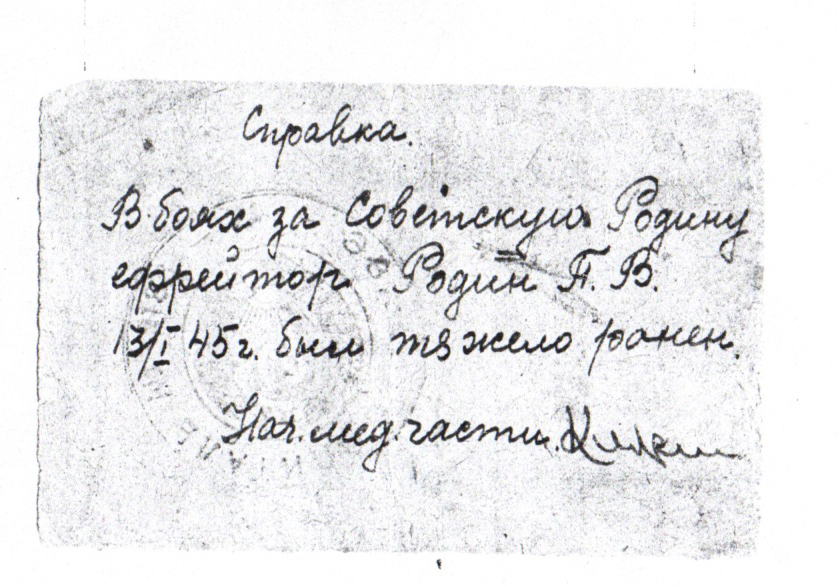 Справка.
В боях за Советскую Родину
ефрейтор Родин П. В.
13/I 45г. был тяжело ранен.
Нач. мед. части.